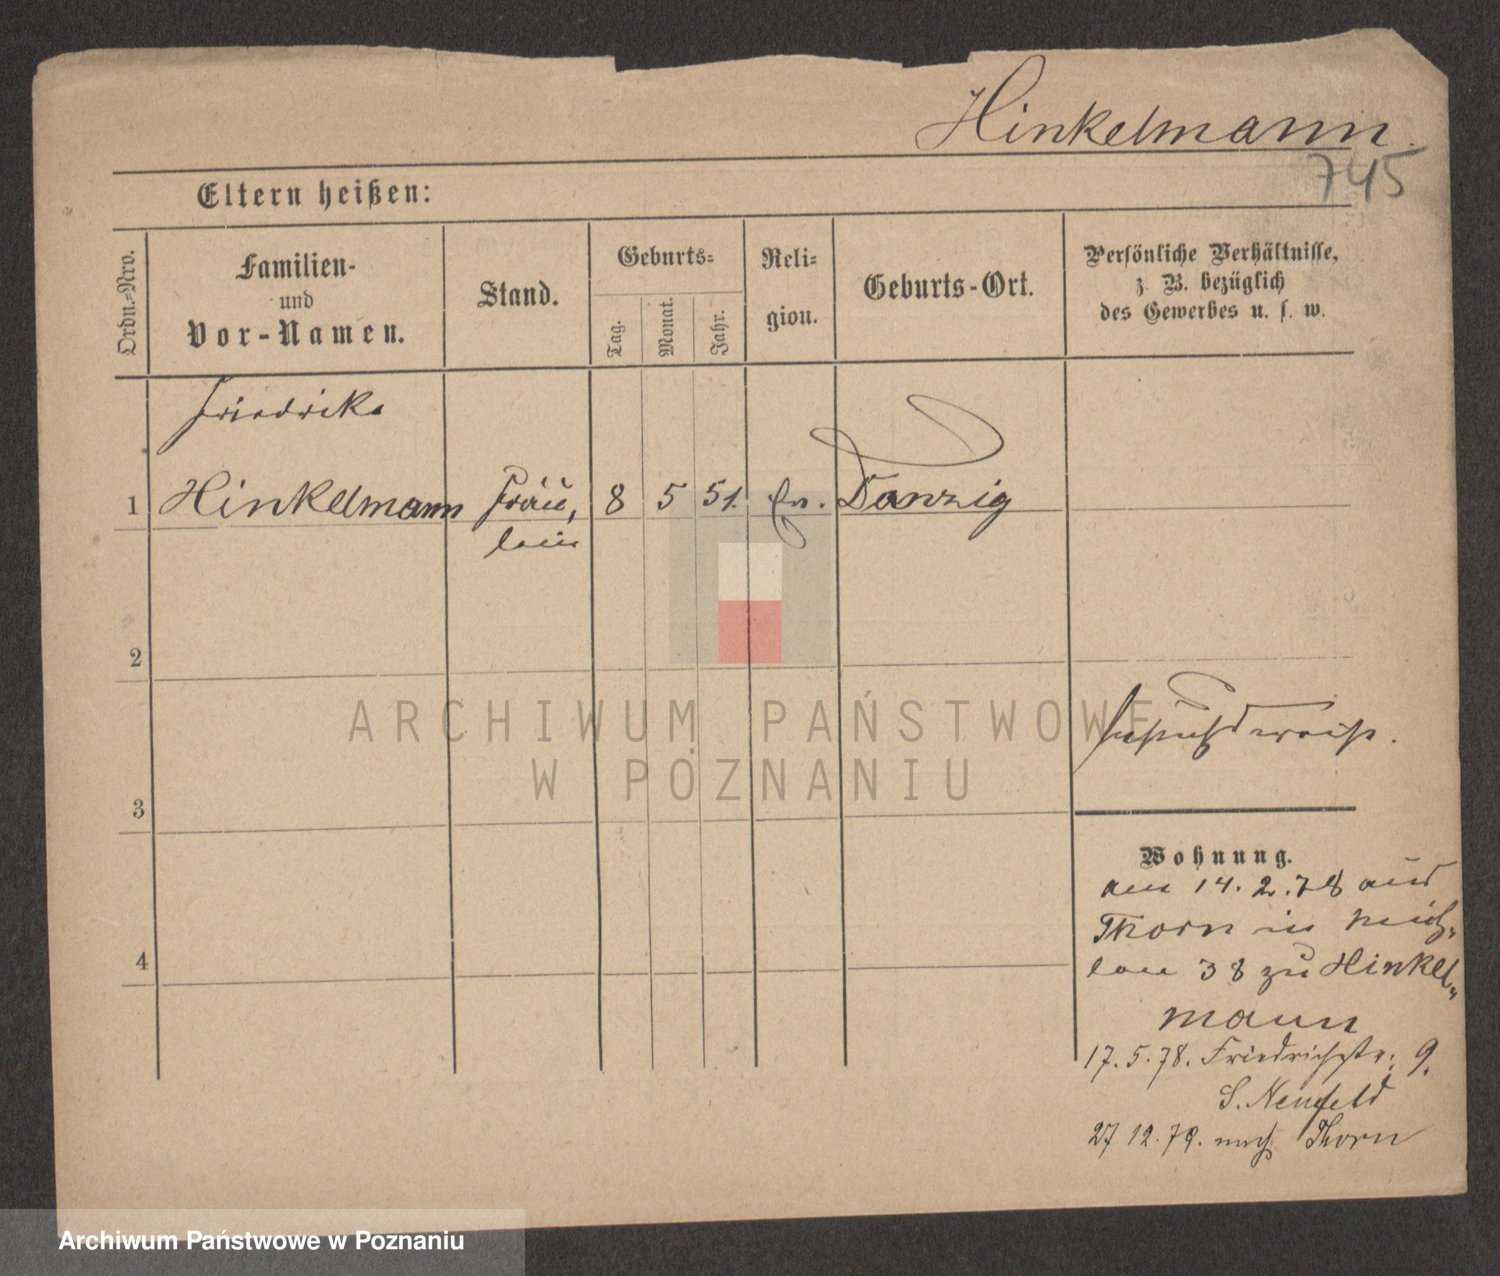 Hinkelmann.
745
Eltern heißen:
Ordn.-Nro.
Familien-
und
Vor-Namen.
Stand.
Geburts-
Tag.
Monat.
Jahr.
Reli-
gion.
Geburts-Ort.
Persönliche Verhältnisse,
z. B. bezüglich
des Gewerbes u. s. w.
Friedrike
1 Hinkelmann Fräu, 8 5 51. Danzig
lein
2
3
4
Wohnung.
am 14.2.78 aus
Thorn in
38 zu Hinkel-
mann
17.5.78. Friedrichstr. 9.
S. Neufeld
27 12.79. nach Thorn
ARCHIWUM PAŃSTWOWE
W POZNANIU
Archiwum Państwowe w Poznaniu